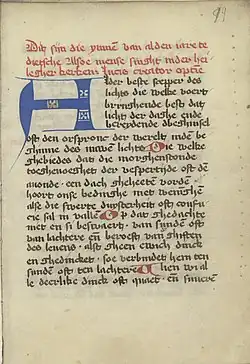 Dit sijn die ymnen van alden iare te
dietsche Also mense singht inder hei
legher kerken Lucis creator optime
der beste scepper des
lichts die welke voert
bringhende best dat
licht der daghe ende
bereydende dbeghinsel
ost den orspronc der werelt inden be
ghinne des lichts Die welke
ghebiedes dat die morghenstonde
toeghevoeghet der vespertijde ost den
avonde een dach gheheeten worden
hoort onse bedinghe met weninghen
alse die swerte duysterheit ost confu
cie sal in vallen Op dat ghedachte
met en si beswaert van sunden ost
van lachteren en berooft van ghiften
des levens alst gheen ewich dinck
en ghedincket soe verbindet hem ten
sunden ost ten lachteren
le deerlike dinck ost quaet en suveren